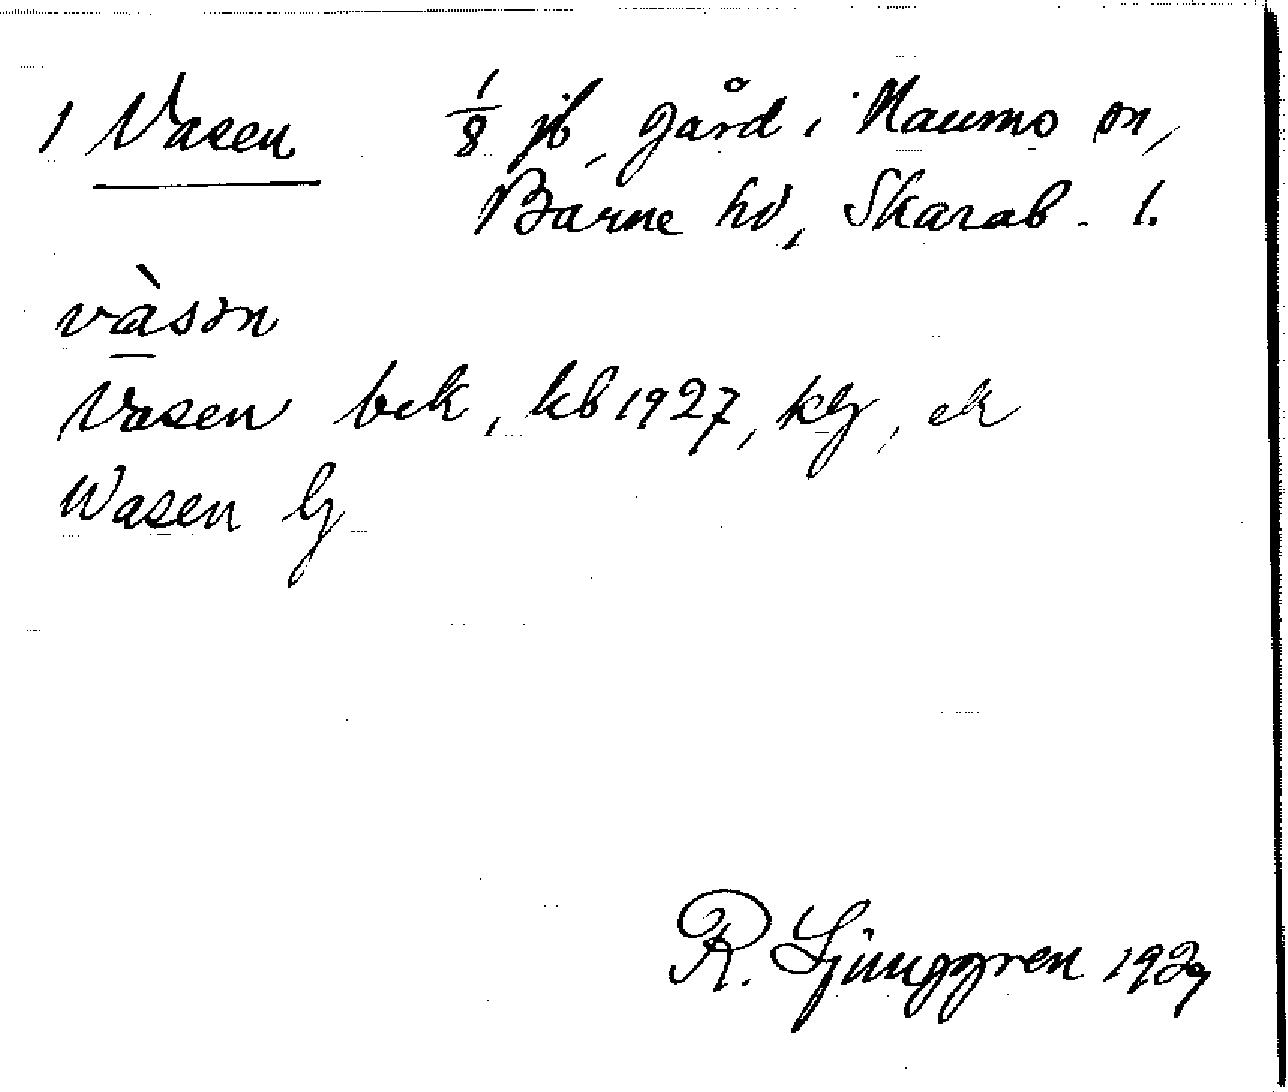 1 Vasen 1/8 jb, gård i Naumo sn,
Barne hd, Skarab. l.
vàsən
Vasen bek, kb 1927, kg, ek
Wasen lj
R. Ljunggren 1929